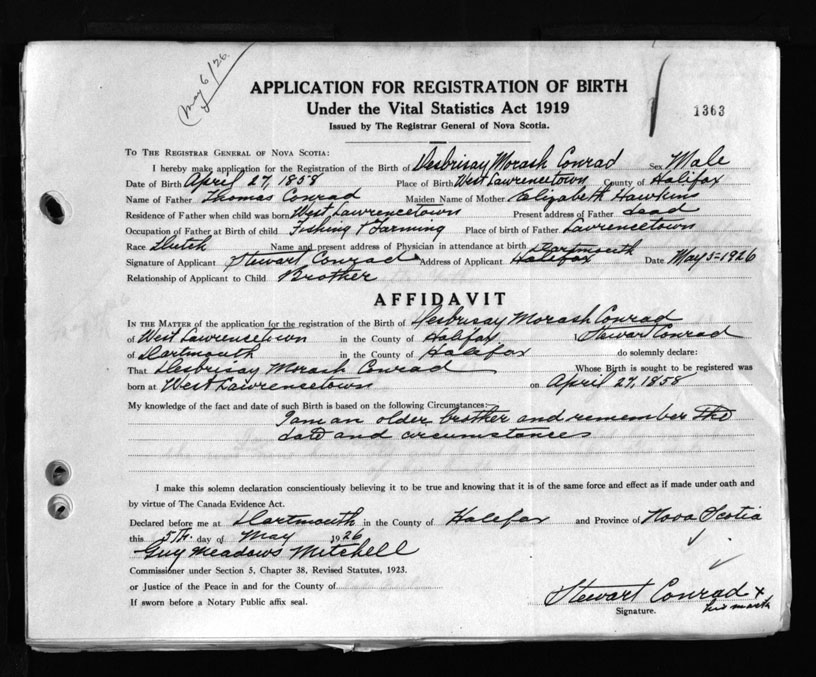 May 6/26.
APPLICATION FOR REGISTRATION OF BIRTH
Under the Vital Statistics Act 1919
Issued by The Registrar General of Nova Scotia.
1363
TO THE REGISTRAR GENERAL OF NOVA SCOTIA:
I hereby make application for the Registration of the Birth of Desbrisay Morash Conrad Sex Male
Date of Birth April 27, 1858 Place of Birth West Lawrencetown County of Halifax
Name of Father Thomas Conrad Maiden Name of Mother Elizabeth Hawkins
Residence of Father when child was born West Lawrencetown Present address of Father Dead
Occupation of Father at Birth of child Fishing & Farming Place of birth of Father Lawrencetown
Race Dutch Name and present address of Physician in attendance at birth
Signature of Applicant Stewart Conrad Address of Applicant Dartmouth Halifax Date May 5=1926
Relationship of Applicant to Child Brother
AFFIDAVIT
IN THE MATTER of the application for the registration of the Birth of Desbrisay Morash Conrad
of West Lawrencetown in the County of Halifax I Stewart Conrad
of Dartmouth in the County of Halifax do solemnly declare:
That Desbrisay Morash Conrad Whose Birth is sought to be registered was
born at West Lawrencetown on April 27, 1858
My knowledge of the fact and date of such Birth is based on the following Circumstances:
I am an older brother and remember the
date and circumstances
I make this solemn declaration conscientiously believing it to be true and knowing that it is of the same force and effect as if made under oath and
by virtue of The Canada Evidence Act.
Declared before me at Dartmouth in the County of Halifax and Province of Nova Scotia
this 5th. day of May 1926
Guy Meadows Mitchell
Commissioner under Section 5, Chapter 38, Revised Statutes, 1923.
or Justice of the Peace in and for the County of
If sworn before a Notary Public affix seal.
Stewart Conrad x
his mark
Signature.